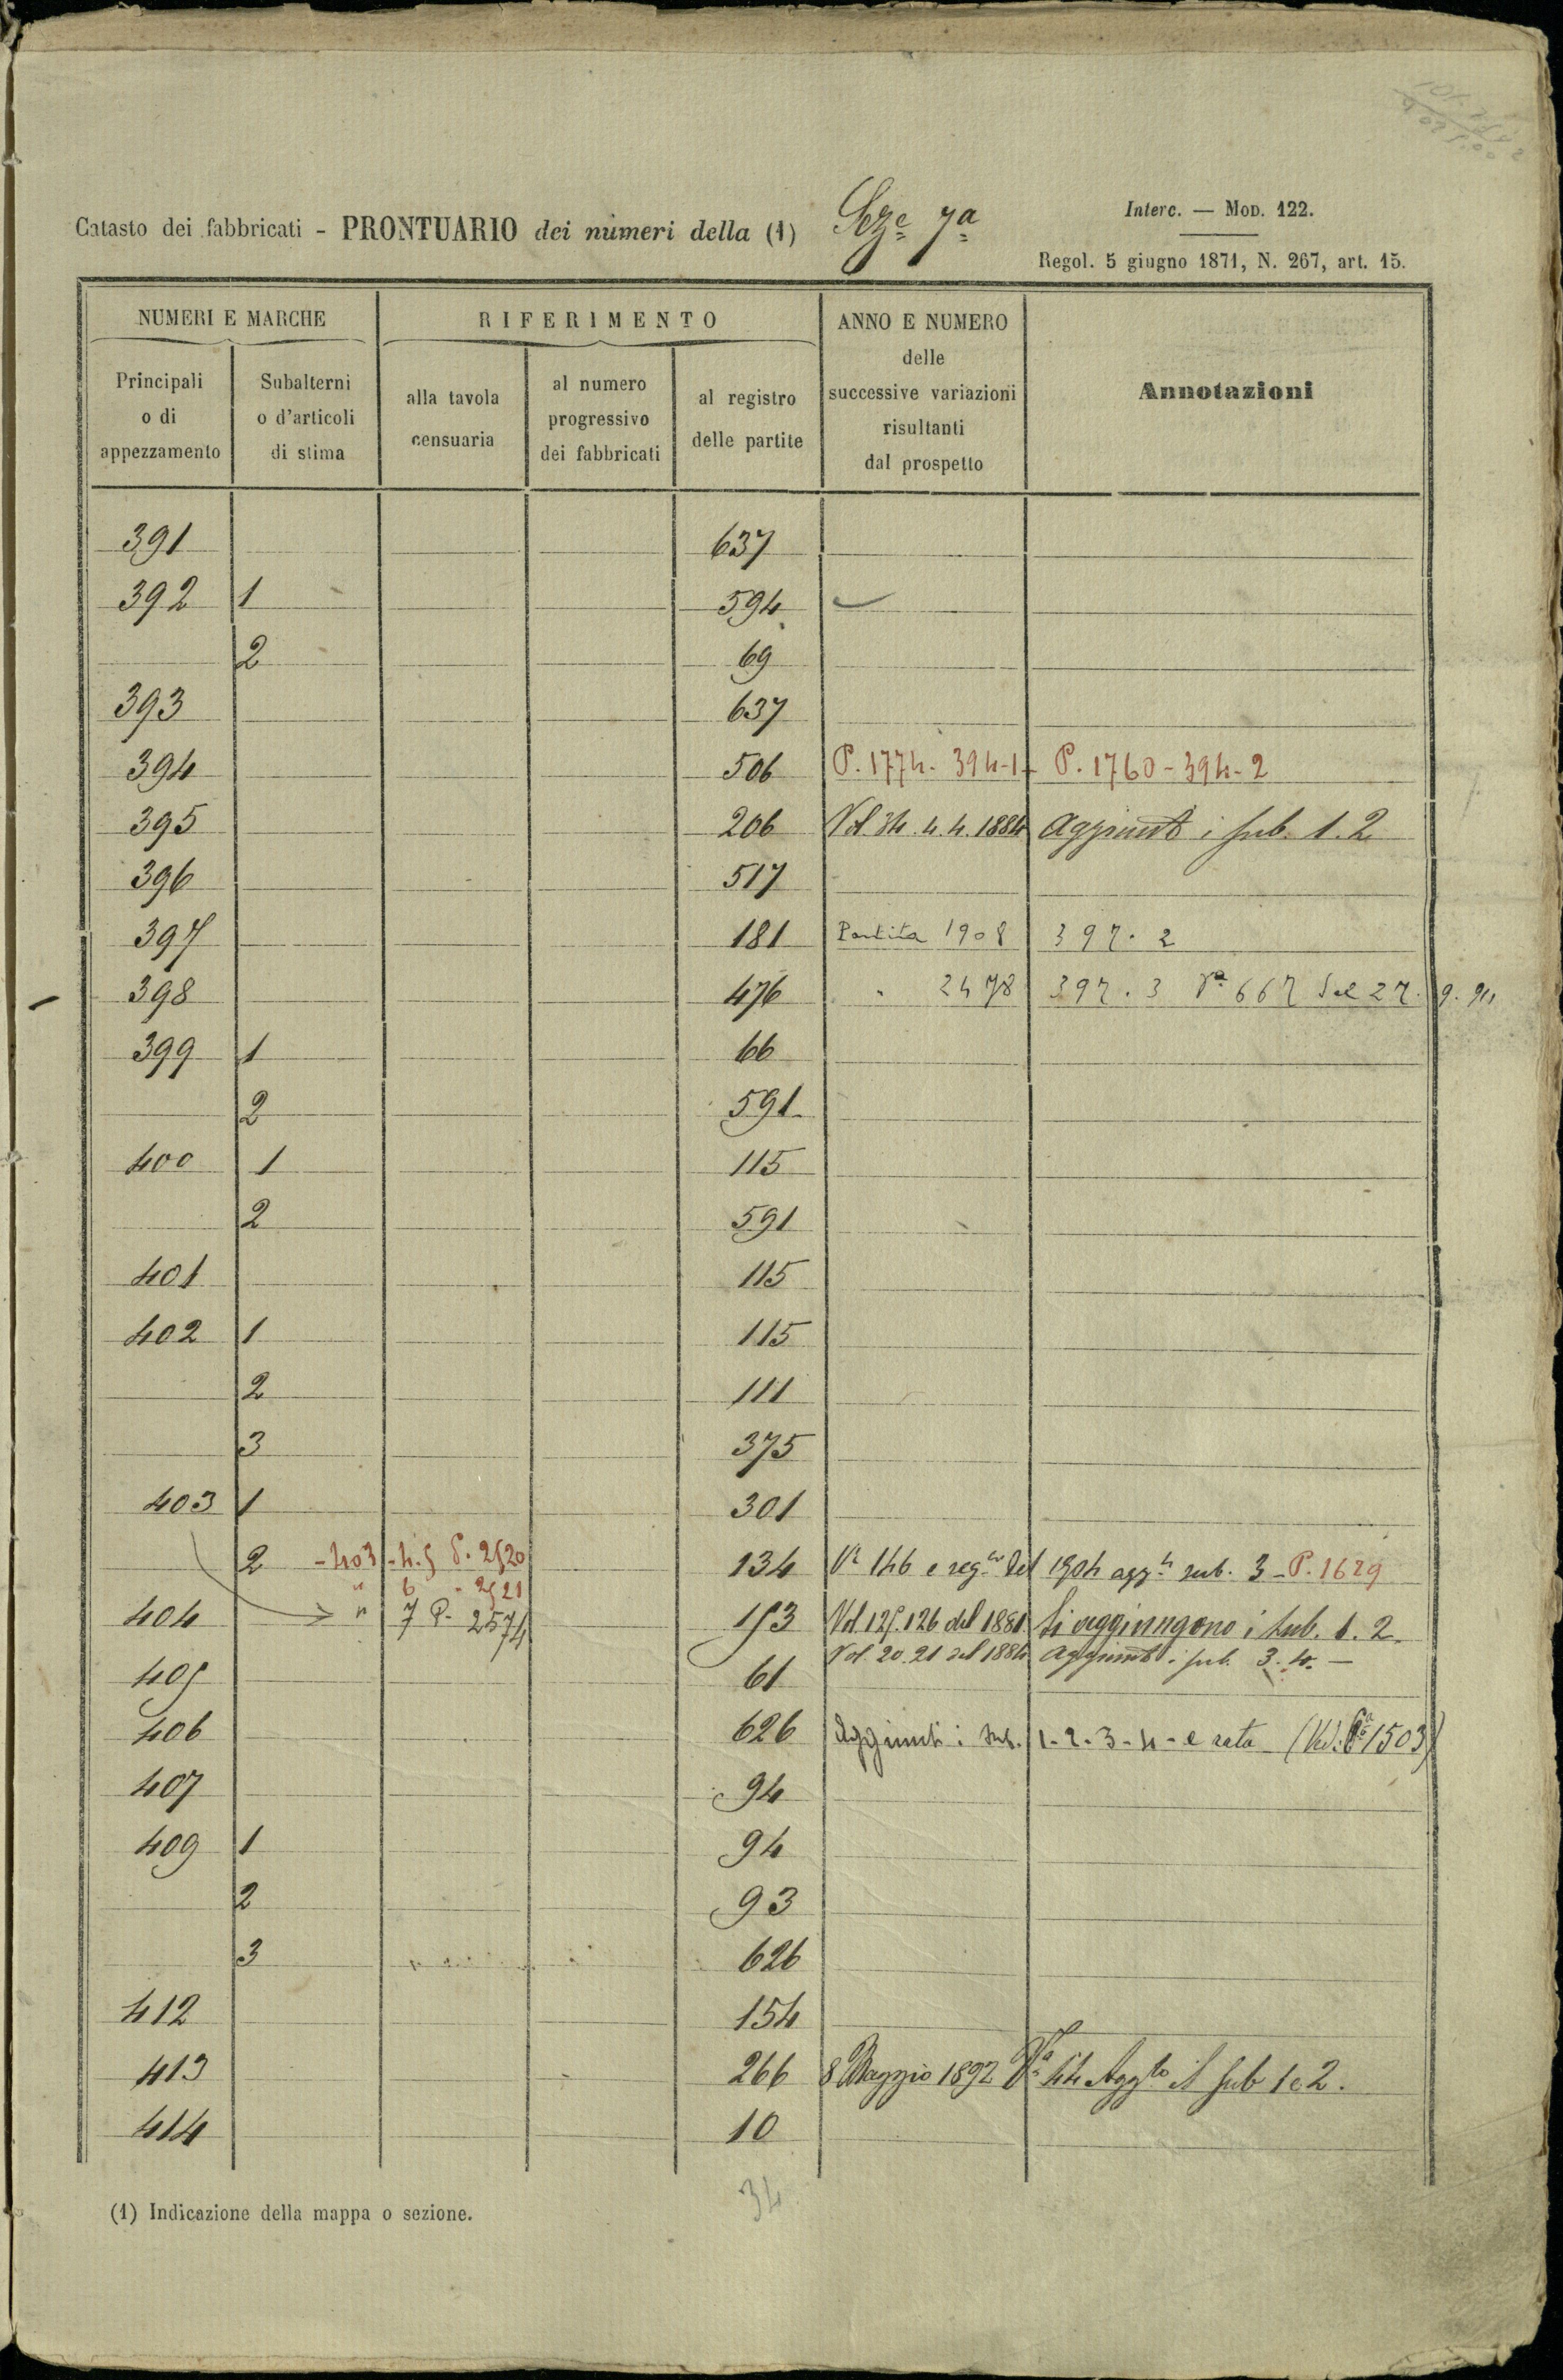 Catasto dei fabbricati - PRONTUARIO dei numeri della (1) Seze 7a
Interc. — Mod. 122.
Regol. 5 giugno 1871, N. 267, art. 15.
NUMERI E MARCHE
RIFERIMENTO
ANNO E NUMERO delle successive variazioni risultanti dal prospetto
Annotazioni
Principali o di appezzamento
Subalterni o d'articoli di stima
alla tavola censuaria
al numero progressivo dei fabbricati
al registro delle partite
391 637
392 1 594
2 69
393 637
394 506 P. 1774. 394-1- P. 1760-394-2
395 206 Vol. 34. 4. 4. 1884 Aggiunti i sub. 1. 2
396 517
397 181 Partita 1908 397. 2
398 476 " 2478 397. 3 Va 667 del 27. 9. 911
399 1 66
2 591
400 1 115
2 591
401 115
402 1 115
2 111
3 375
403 1 301
2 -403-4.5 P. 2520 134 Va 146 e segti del 1904 aggti sub. 3 - P. 1629
" 6 " 2521
404 " 7 P. 2574 153 Vol. 125. 126 del 1881 Si aggiungono i sub. 1. 2.
Vol. 20. 21 del 1884 Aggiunti i sub. 3. 4. —
405 61
406 626 Aggiunti i sub. 1-2-3-4- e rata (Ved. 1503)
407 94
409 1 94
2 93
3 626
412 154
413 266 8 Maggio 1892 Va 44 Aggto il sub 1 e 2.
414 10
34
(1) Indicazione della mappa o sezione.